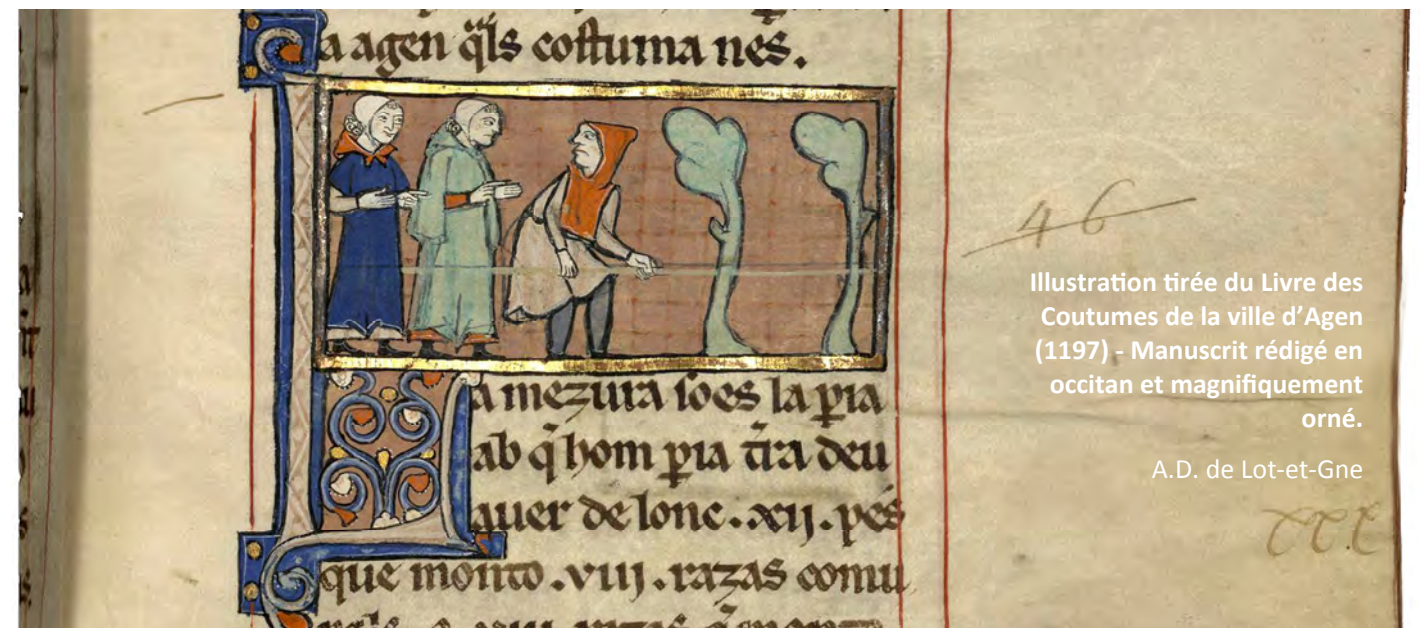 a agen q̃ls coſtuma nes.
La mezura ſo es la ꝑia
ab q̃ hom ꝑia t̃ra deu
auer de lonc. xij. pes
que monto .viij. razas comu
46
Illustration tirée du Livre des
Coutumes de la ville d’Agen
(1197) - Manuscrit rédigé en
occitan et magnifiquement
orné.
A.D. de Lot-et-Gne